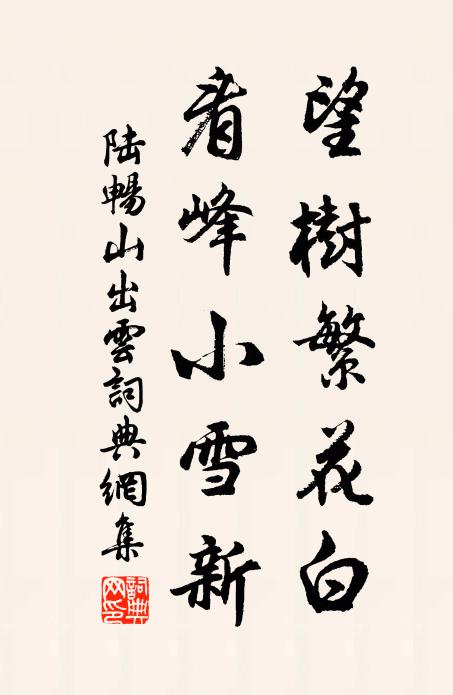 望樹繁花白
看峰小雪新
陆暢山出雲詞典網集
詞典
网印